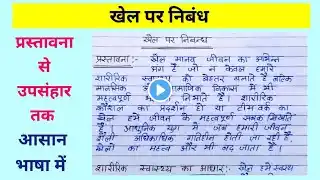 खेल पर निबंध
प्रस्तावना
से
उपसंहार
तक
आसान
भाषा में
खेल पर निबन्ध
प्रस्तावना :- खेल मानव जीवन का अभिन्न
अंग है जो न केवल हमारे
शारीरिक स्वास्थ्य को बेहतर बनाते है बल्कि
मानसिक और सामाजिक विकास में भी
महत्वपूर्ण भूमिका निभाते हैं। शारीरिक
कौशल का प्रदर्शन हो या टीम वर्क का
खेल हमें जीवन के महत्वपूर्ण सबक सिखाते
हैं। आधुनिक युग में जब हमारी जीवन
शैली अधिकाधिक गतिहीन होती जा रही है,
खेलों का महत्व और भी बढ़ जाता है।
शारीरिक स्वास्थ्य का आधार :- खेल हमें स्वस्थ